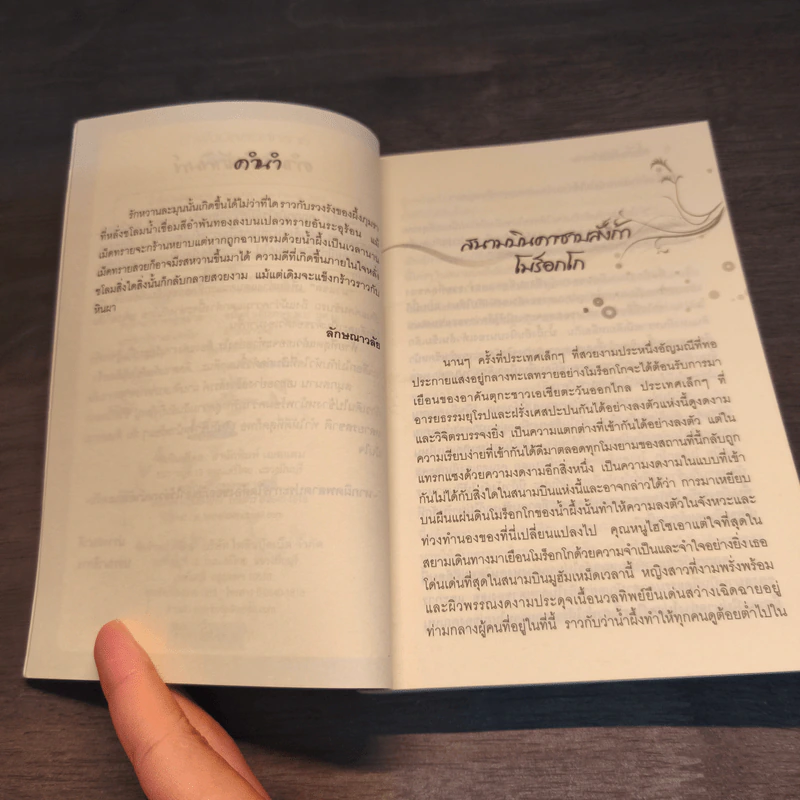 คำนำ
รักหวานละมุนนั้นเกิดขึ้นได้ไม่ว่าที่ใด ราวกับรวงรังของผึ้งภุมรา
ที่หลั่งชโลมน้ำเชื่อมสีอำพันทองลงบนเปลวทรายอันระอุร้อน แม้
เม็ดทรายจะกร้านหยาบแต่หากถูกฉาบพรมด้วยน้ำผึ้งเป็นเวลานาน
เม็ดทรายสวยก็อาจมีรสหวานขึ้นมาได้ ความดีที่เกิดขึ้นภายในใจหลั่ง
ชโลมสิ่งใดสิ่งนั้นก็กลับกลายสวยงาม แม้แต่เดิมจะแข็งกร้าวราวกับ
หินมา
ลักษณาวลัย
สนามบินคาซาบลังก้า
โมร็อกโก
นานๆ ครั้งที่ประเทศเล็กๆ ที่สวยงามประหนึ่งอัญมณีที่ทอ
ประกายแสงอยู่กลางทะเลทรายอย่างโมร็อกโกจะได้ต้อนรับการมา
เยือนของอาคันตุกะชาวเอเชียตะวันออกไกล ประเทศเล็กๆ ที่
อารยธรรมยุโรปและฝรั่งเศสปะปนกันได้อย่างลงตัวแห่งนี้ดูงดงาม
และวิจิตรบรรจงยิ่ง เป็นความแตกต่างที่เข้ากันได้อย่างลงตัว แต่ใน
ความเรียบง่ายที่เข้ากันได้ดีมาตลอดทุกโมงยามของสถานที่นี้กลับถูก
แทรกแซงด้วยความงดงามอีกสิ่งหนึ่ง เป็นความงดงามในแบบที่เข้า
กันไม่ได้กับสิ่งใดในสนามบินแห่งนี้และอาจกล่าวได้ว่า การมาเหยียบ
บนผืนแผ่นดินโมร็อกโกของน้ำผึ้งนั้นทำให้ความลงตัวในจังหวะและ
ท่วงทำนองของที่นี่เปลี่ยนแปลงไป คุณหนูไฮโซเอาแต่ใจที่สุดใน
สยามเดินทางมาเยือนโมร็อกโกด้วยความจำเป็นและจำใจอย่างยิ่ง เธอ
โดดเด่นที่สุดในสนามบินมูฮัมเหม็ดเวลานี้ หญิงสาวที่งามพรั่งพร้อม
และผิวพรรณงดงามประดุจเนื้อนวลทิพย์ยืนเด่นสว่างเฉิดฉายอยู่
ท่ามกลางผู้คนที่อยู่ในที่นี้ ราวกับว่าน้ำผึ้งทำให้ทุกคนดูด้อยต่ำไปใน